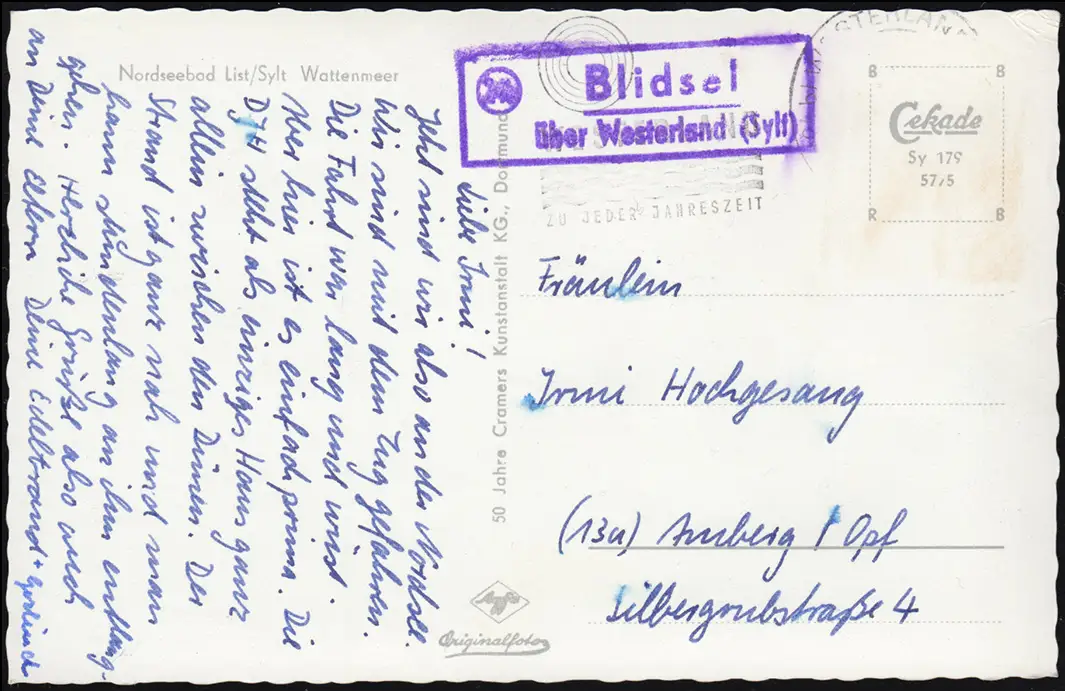 Nordseebad List/Sylt Wattenmeer
Liebe Irmi!
Jetzt sind wir also an der Nordsee.
Wir sind mit dem Zug gefahren.
Die Fahrt war lang und wüst.
Aber hier ist es einfach prima. Die
DJH steht als einziges Haus ganz
allein zwischen den Dünen. Der
Strand ist ganz nah und man
kann stundenlang an ihm entlang-
gehen. Herzliche Grüße also auch
an Deine Eltern Deine Edeltraud +
50 Jahre Cramers Kunstanstalt KG., Dortmund
Agfa
Originalfoto
Blidsel
über Westerland (Sylt)
WESTERLAND
ZU JEDER JAHRESZEIT
B B
Cekade
Sy 179
5775
R B
Fräulein
Irmi Hochgesang
(13a) Amberg / Opf
Silbergrubstraße 4